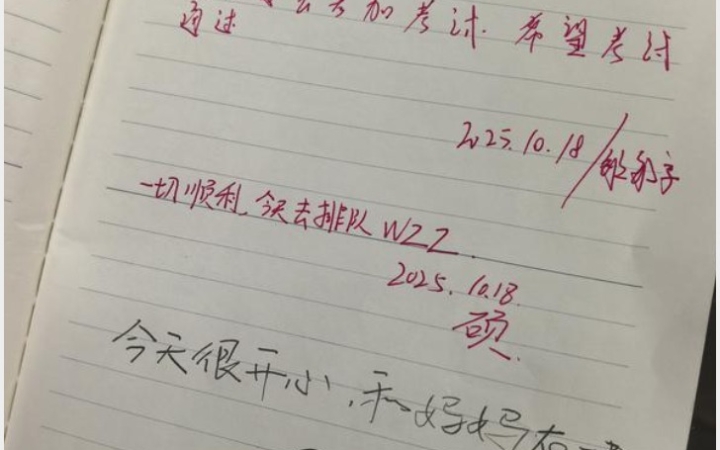 去参加考试. 希望考试
通过
2025.10.18/
一切顺利, 今天去排队 WZZ.
2025.10.18.
硕.
今天很开小,和妈妈在一